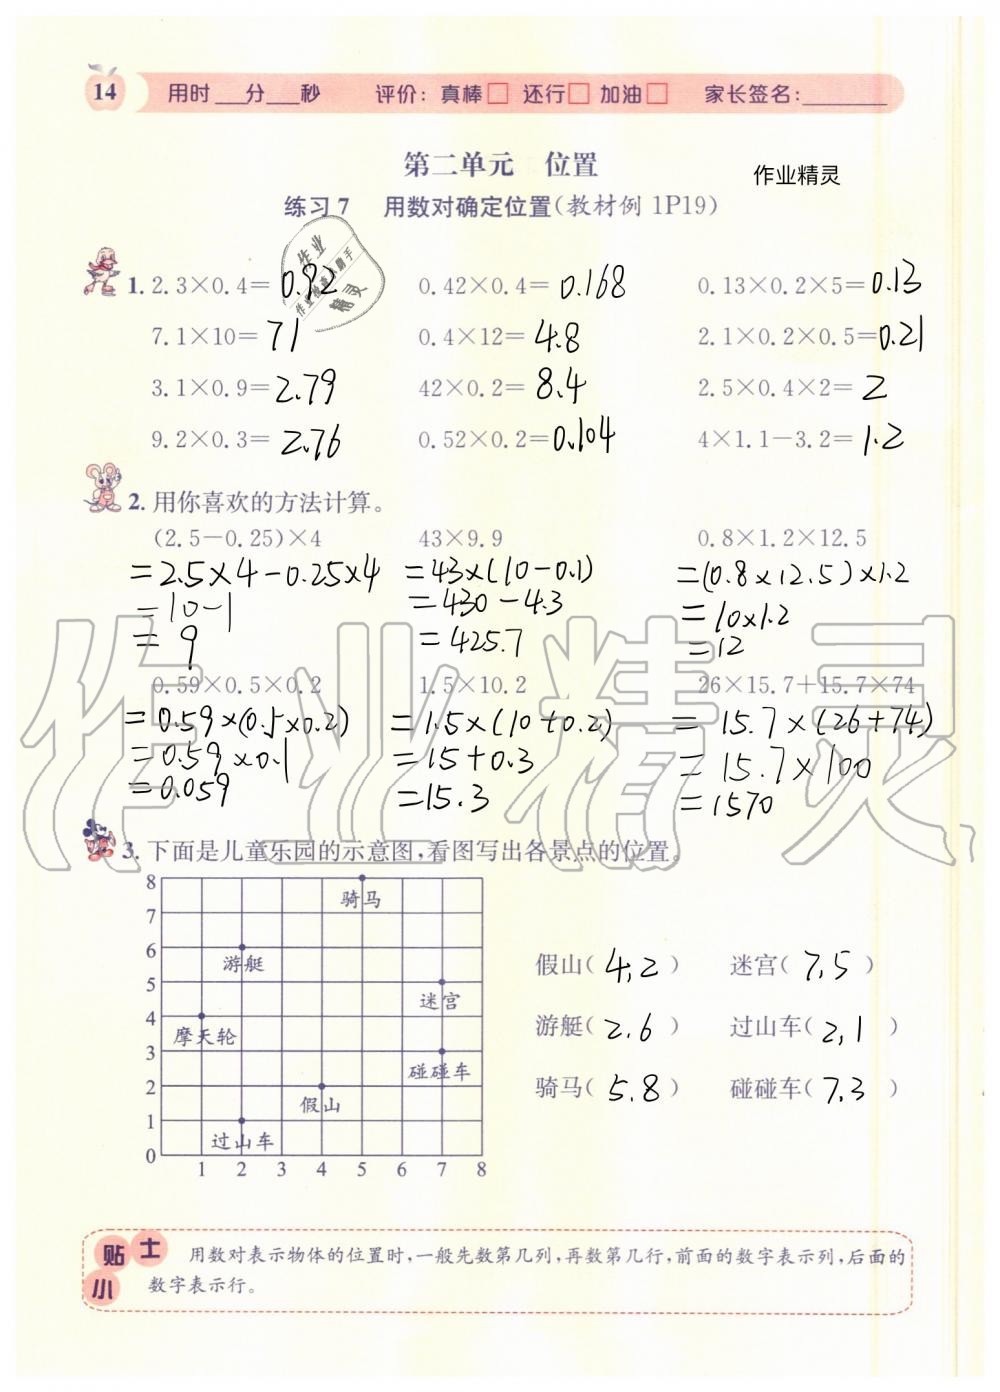 14 用时___分___秒 评价：真棒□ 还行□ 加油□ 家长签名：______
第二单元 位置
作业精灵
练习7 用数对确定位置(教材例1P19)
作业
作业检查小助手
精灵
1. 2.3×0.4= 0.92 0.42×0.4= 0.168 0.13×0.2×5= 0.13
7.1×10= 71 0.4×12= 4.8 2.1×0.2×0.5= 0.21
3.1×0.9= 2.79 42×0.2= 8.4 2.5×0.4×2= 2
9.2×0.3= 2.76 0.52×0.2= 0.104 4×1.1-3.2= 1.2
2. 用你喜欢的方法计算。
(2.5-0.25)×4 43×9.9 0.8×1.2×12.5
=2.5×4-0.25×4 =43×(10-0.1) =(0.8×12.5)×1.2
=10-1 =430-4.3 =10×1.2
=9 =425.7 =12
0.59×0.5×0.2 1.5×10.2 26×15.7+15.7×74
=0.59×(0.5×0.2) =1.5×(10+0.2) =15.7×(26+74)
=0.59×0.1 =15+0.3 =15.7×100
=0.059 =15.3 =1570
作业精灵
3. 下面是儿童乐园的示意图,看图写出各景点的位置。
8 骑马
7
6 游艇
5 迷宫
4 摩天轮
3 碰碰车
2 假山
1 过山车
0 1 2 3 4 5 6 7 8
假山( 4,2 ) 迷宫( 7,5 )
游艇( 2.6 ) 过山车( 2,1 )
骑马( 5.8 ) 碰碰车( 7.3 )
小贴士
用数对表示物体的位置时,一般先数第几列,再数第几行,前面的数字表示列,后面的
数字表示行。